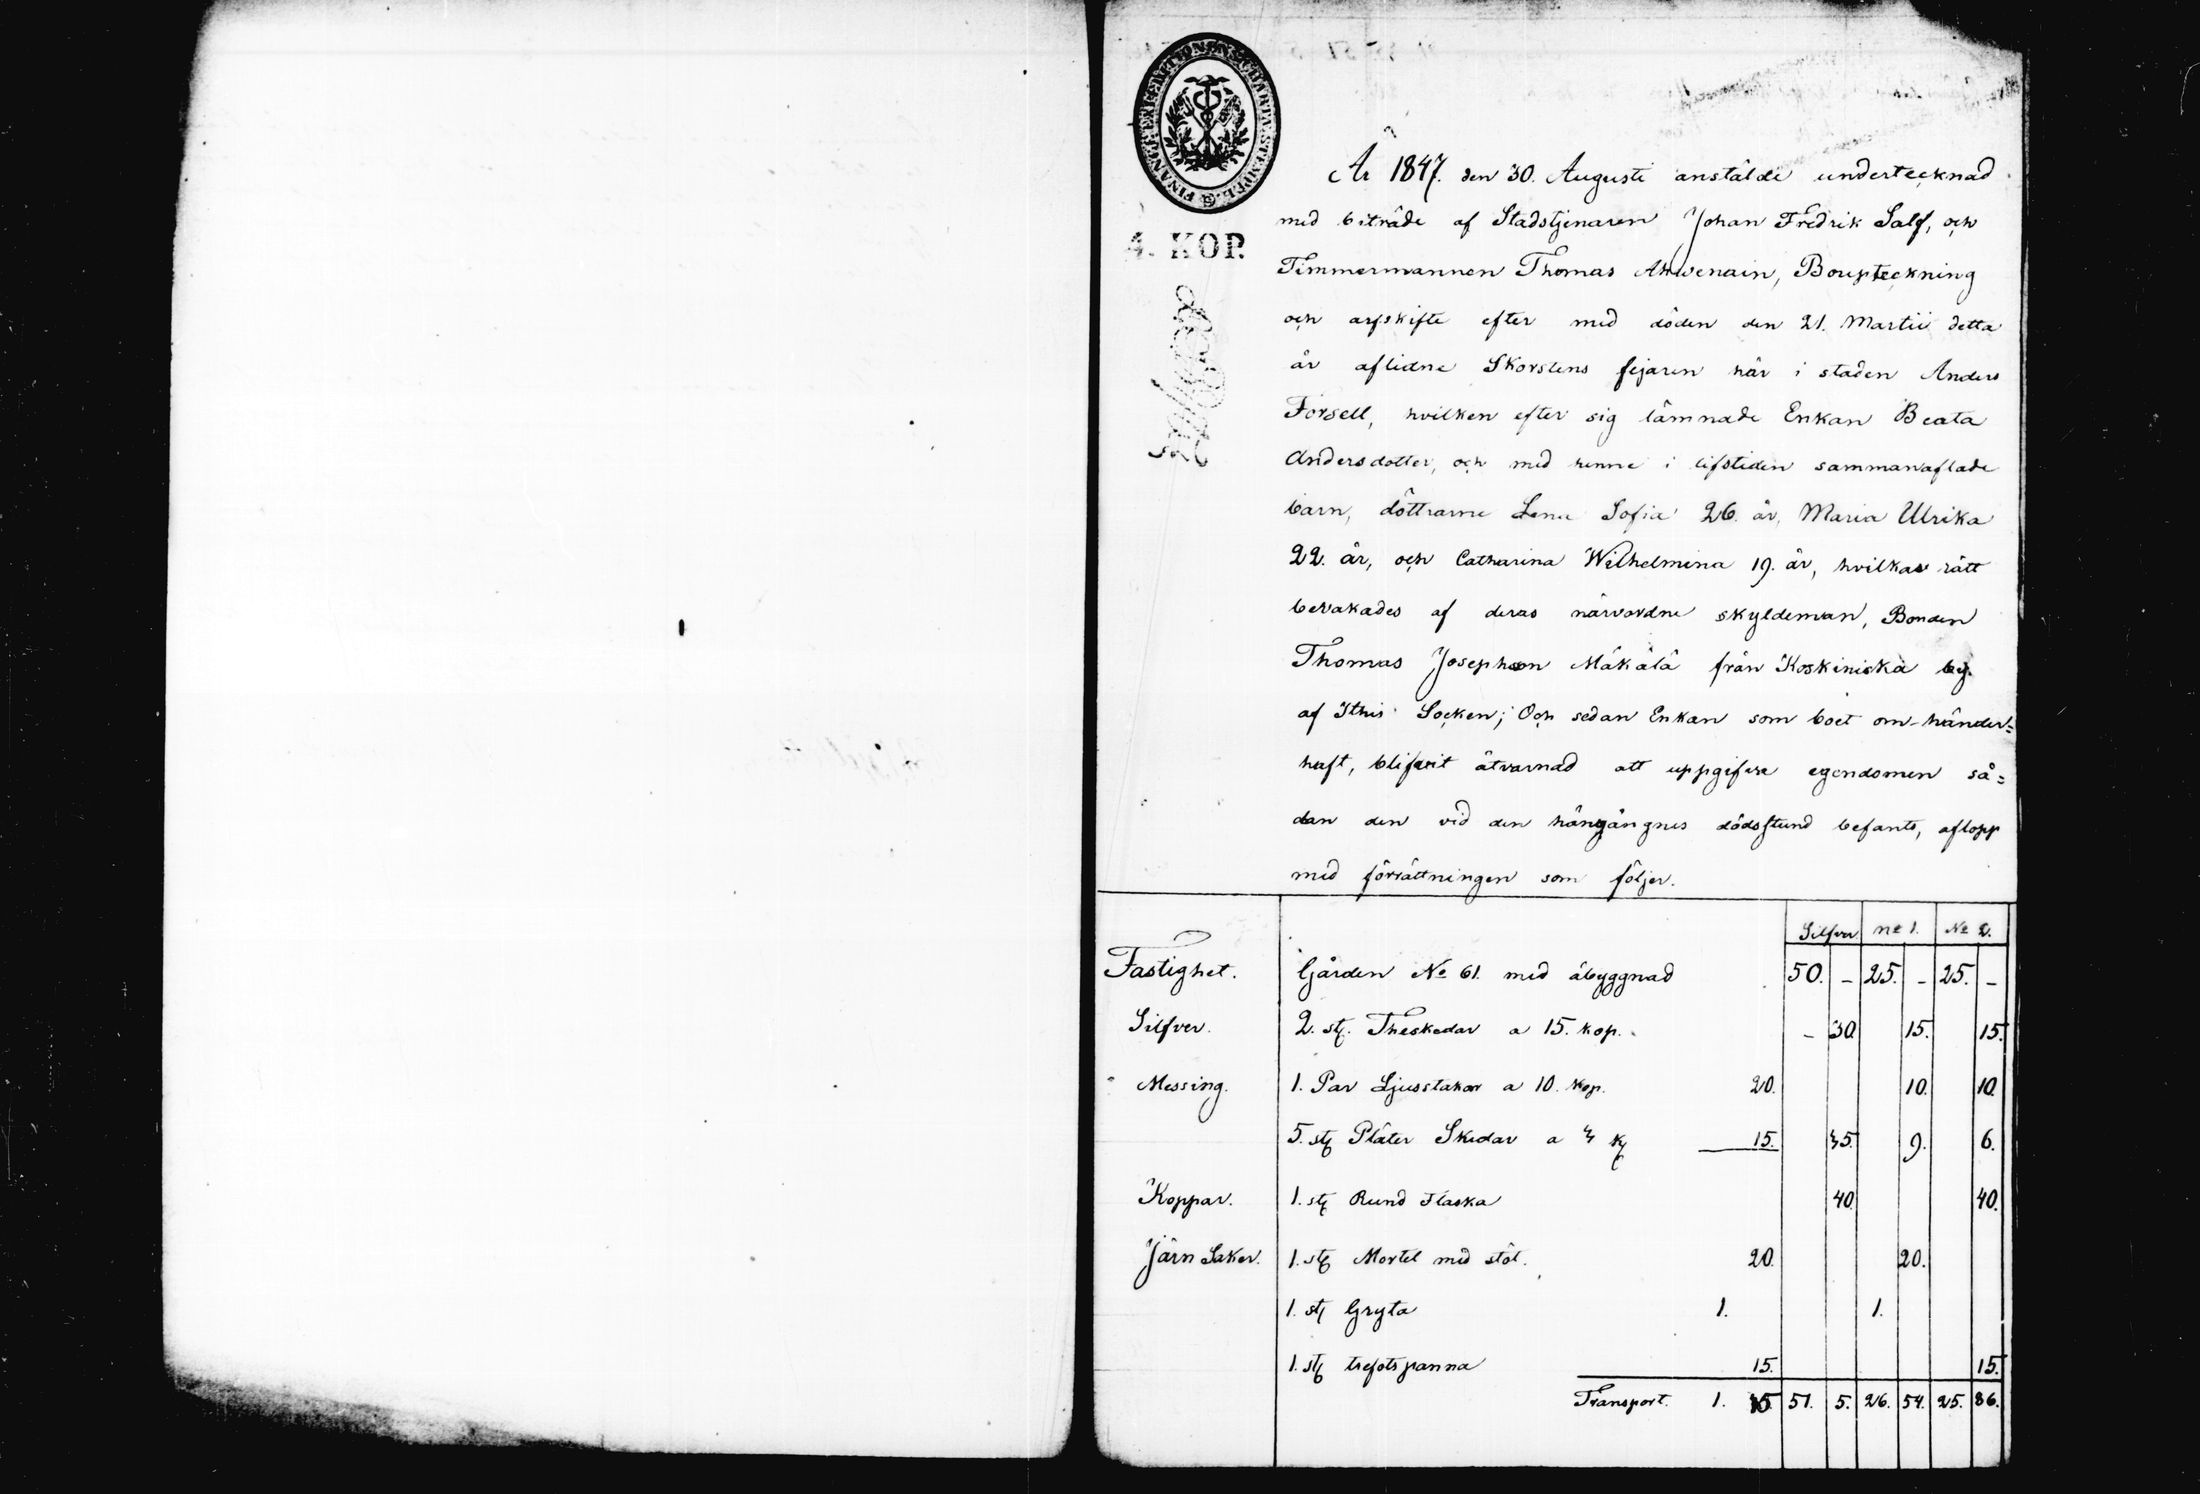 FINANCE EXPEDITIONENS CHARTÆ STEMPEL
4. KOP.
År 1847. den 30. Augusti anstälde undertecknad
med biträde af Stadstjenaren Johan Fredrik Salf, och
Timmermannen Thomas Ahwenain, Boupteckning
och arfskifte efter med döden den 21. Martii detta
år aflidne Skorstens fejaren här i staden Anders
Forsell, hvilken efter sig lämnade Enkan Beata
Andersdotter, och med henne i lifstiden sammanaflade
barn, döttrarne Lena Sofia 26. år, Maria Ulrika
22. år, och Catharina Wilhelmina 19. år, hvilkas rätt
bevakades af deras närvordne skyldeman, Bonden
Thomas Josephson Mäkälä från Koskiniska by
af Ithis Socken; Och sedan Enkan som boet om händer-
haft, blifvit åtvarnad att uppgifva egendomen så=
dan den vid den hängångnes dödsstund befants, aflopp
med förrättningen som följer.
Silfver No 1. No 2.
Fastighet. Gården No 61. med åbyggnad 50. - 25. - 25. -
Silfver. 2. st. Theskedar a 15. kop. - 30 15. 15.
Messing. 1. Par Ljusstakar a 10. kop. 20. 10. 10.
5. st Pläter Skedar a 3 k 15. 35. 9. 6.
Koppar. 1. st Rund Flaska 40. 40.
Järn Saker. 1. st Mortel med stöt. 20. 20.
1. st Gryta 1. 1.
1. st trefotspanna 15. 15.
Transport. 1. 35 51. 5. 26. 54. 25. 86.